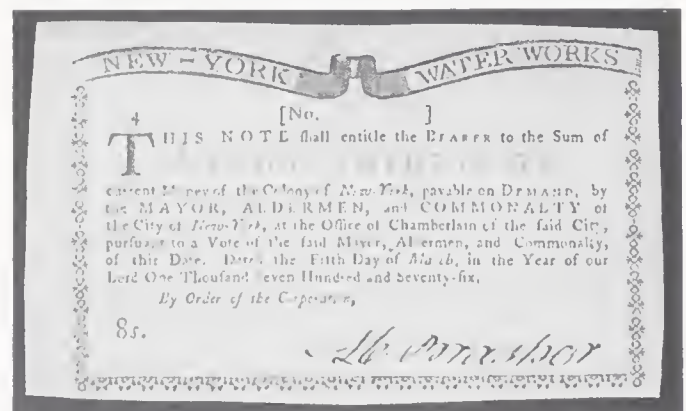 NEW-YORK WATER WORKS
[No. ]
4
THIS NOTE ſhall entitle the BEARER to the Sum of
current Money of the Colony of New-York, payable on DEMAND, by
the MAYOR, ALDERMEN, and COMMONALTY of
the City of New-York, at the Office of Chamberlain of the ſaid City,
purſuant to a Vote of the ſaid Mayor, Aldermen, and Commonalty,
of this Date. Dated the Fifth Day of March, in the Year of our
Lord One Thouſand ſeven Hundred and Seventy-ſix.
By Order of the Corporation,
8s.